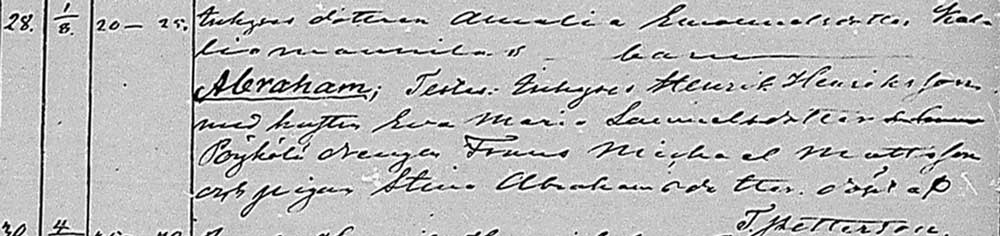 28. 1/8. 20 – 25. Inhyses dotteren Amalia Emanuelsdotter Kal-
liomannilas barn
Abraham; Testes: Inhyses Henrik Henriksson
med hustru Eva Maria Samuelsdotter
Pöyhölä drengen Frans Michael Mattsson
och pigan Stina Abrahamsdotter. döpt af
T. Petterson.
30. 4